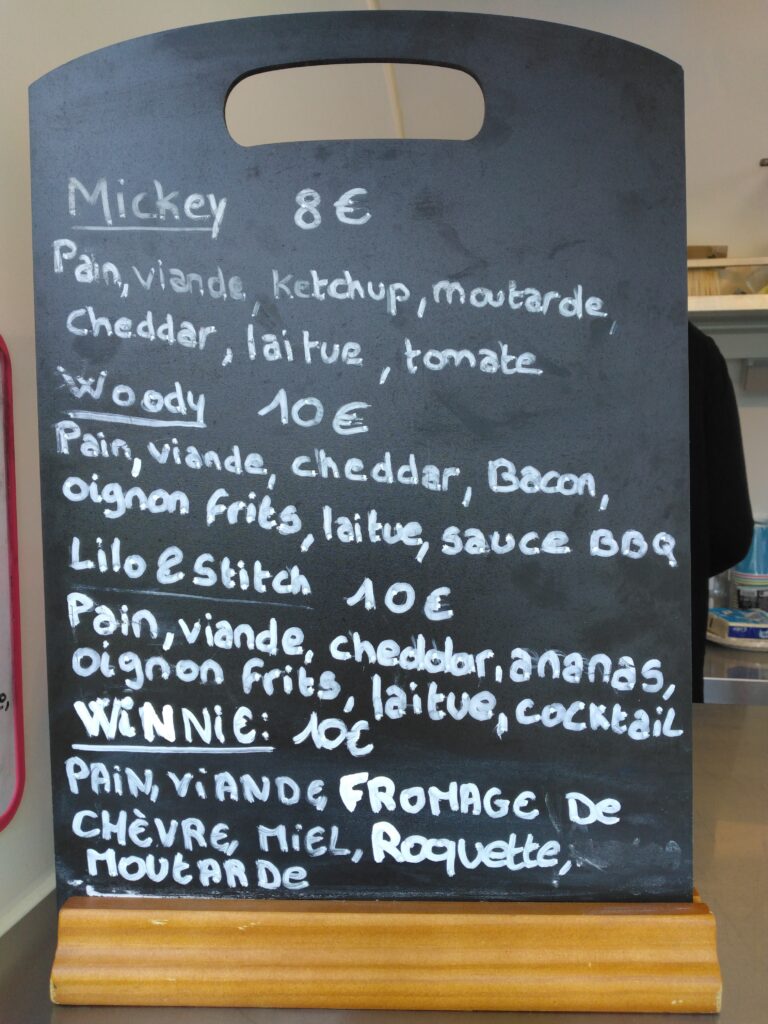 Mickey 8€
Pain, viande, ketchup, moutarde,
cheddar, laitue, tomate
Woody 10€
Pain, viande, cheddar, Bacon,
oignon frits, laitue, sauce BBQ
Lilo & Stitch 10€
Pain, viande, cheddar, ananas,
oignon frits, laitue, cocktail
WiNNiE: 10€
PAiN, ViANDE, FROMAGE De
CHÈVRE, MiEL, Roquette,
MOUtARDe